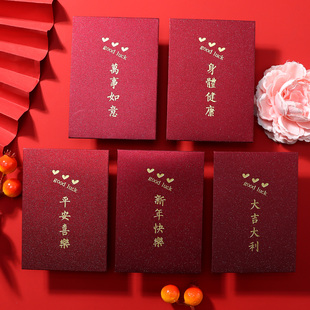 good luck
萬事如意
good luck
身體健康
good luck
平安喜樂
good luck
新年快樂
good luck
大吉大利